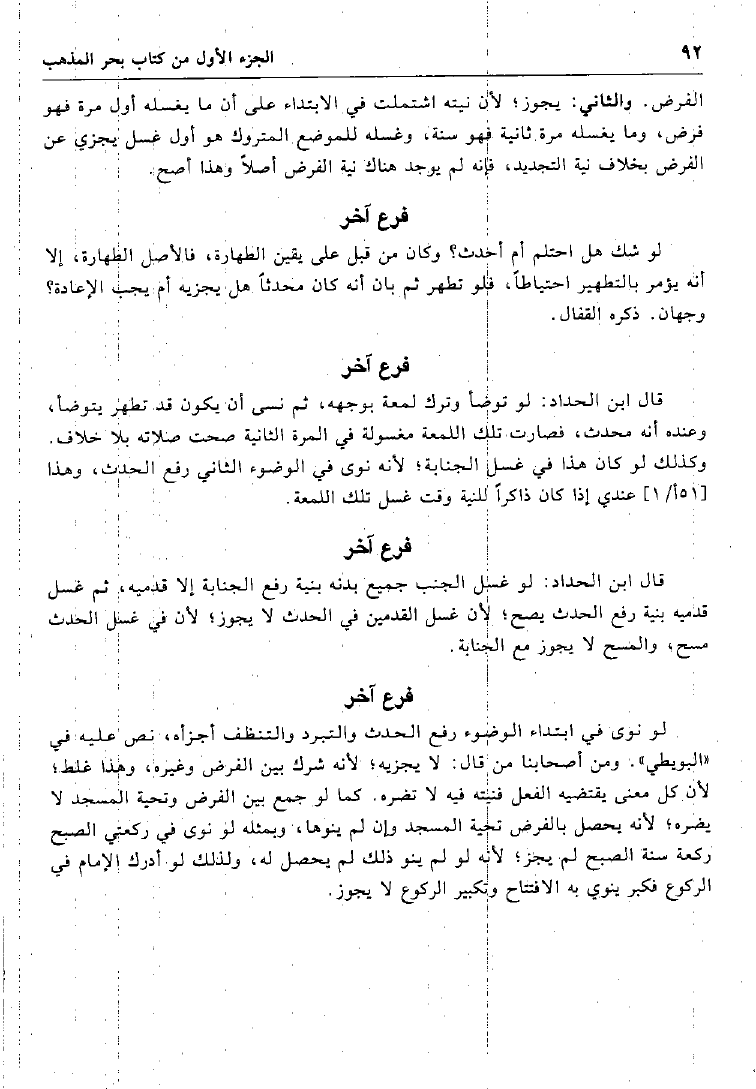 ٩٢
الجزء الأول من كتاب بحر المذهب
الفرض. والثاني: يجوز؛ لأن نيته اشتملت في الابتداء على أن ما يغسله أول مرة فهو
فرض، وما يغسله مرة ثانية فهو سنة، وغسله للموضع المتروك هو أول غسل يجزي عن
الفرض بخلاف نية التجديد، فإنه لم يوجد هناك نية الفرض أصلاً وهذا أصح.
فرع آخر
لو شك هل احتلم أم أحدث؟ وكان من قبل على يقين الطهارة، فالأصل الطهارة، إلا
أنه يؤمر بالتطهير احتياطاً، فلو تطهر ثم بان أنه كان محدثاً هل يجزيه أم يجب الإعادة؟
وجهان. ذكره القفال.
فرع آخر
قال ابن الحداد: لو توضأ وترك لمعة بوجهه، ثم نسى أن يكون قد تطهر يتوضأ،
وعنده أنه محدث، فصارت تلك اللمعة مغسولة في المرة الثانية صحت صلاته بلا خلاف.
وكذلك لو كان هذا في غسل الجنابة؛ لأنه نوى في الوضوء الثاني رفع الحدث، وهذا
[٥١أ/ ١] عندي إذا كان ذاكراً للنية وقت غسل تلك اللمعة.
فرع آخر
قال ابن الحداد: لو غسل الجنب جميع بدنه بنية رفع الجنابة إلا قدميه، ثم غسل
قدميه بنية رفع الحدث يصح؛ لأن غسل القدمين في الحدث لا يجوز؛ لأن في غسل الحدث
مسح، والمسح لا يجوز مع الجنابة.
فرع آخر
لو نوى في ابتداء الوضوء رفع الحدث والتبرد والتنظف أجزأه، نص عليه في
«البويطي». ومن أصحابنا من قال: لا يجزيه؛ لأنه شرك بين الفرض وغيره، وهذا غلط؛
لأن كل معنى يقتضيه الفعل فنيته فيه لا تضره. كما لو جمع بين الفرض وتحية المسجد لا
يضره؛ لأنه يحصل بالفرض تحية المسجد وإن لم ينوها، وبمثله لو نوى في ركعتي الصبح
ركعة سنة الصبح لم يجز؛ لأنه لو لم ينو ذلك لم يحصل له، ولذلك لو أدرك الإمام في
الركوع فكبر ينوي به الافتتاح وتكبير الركوع لا يجوز.